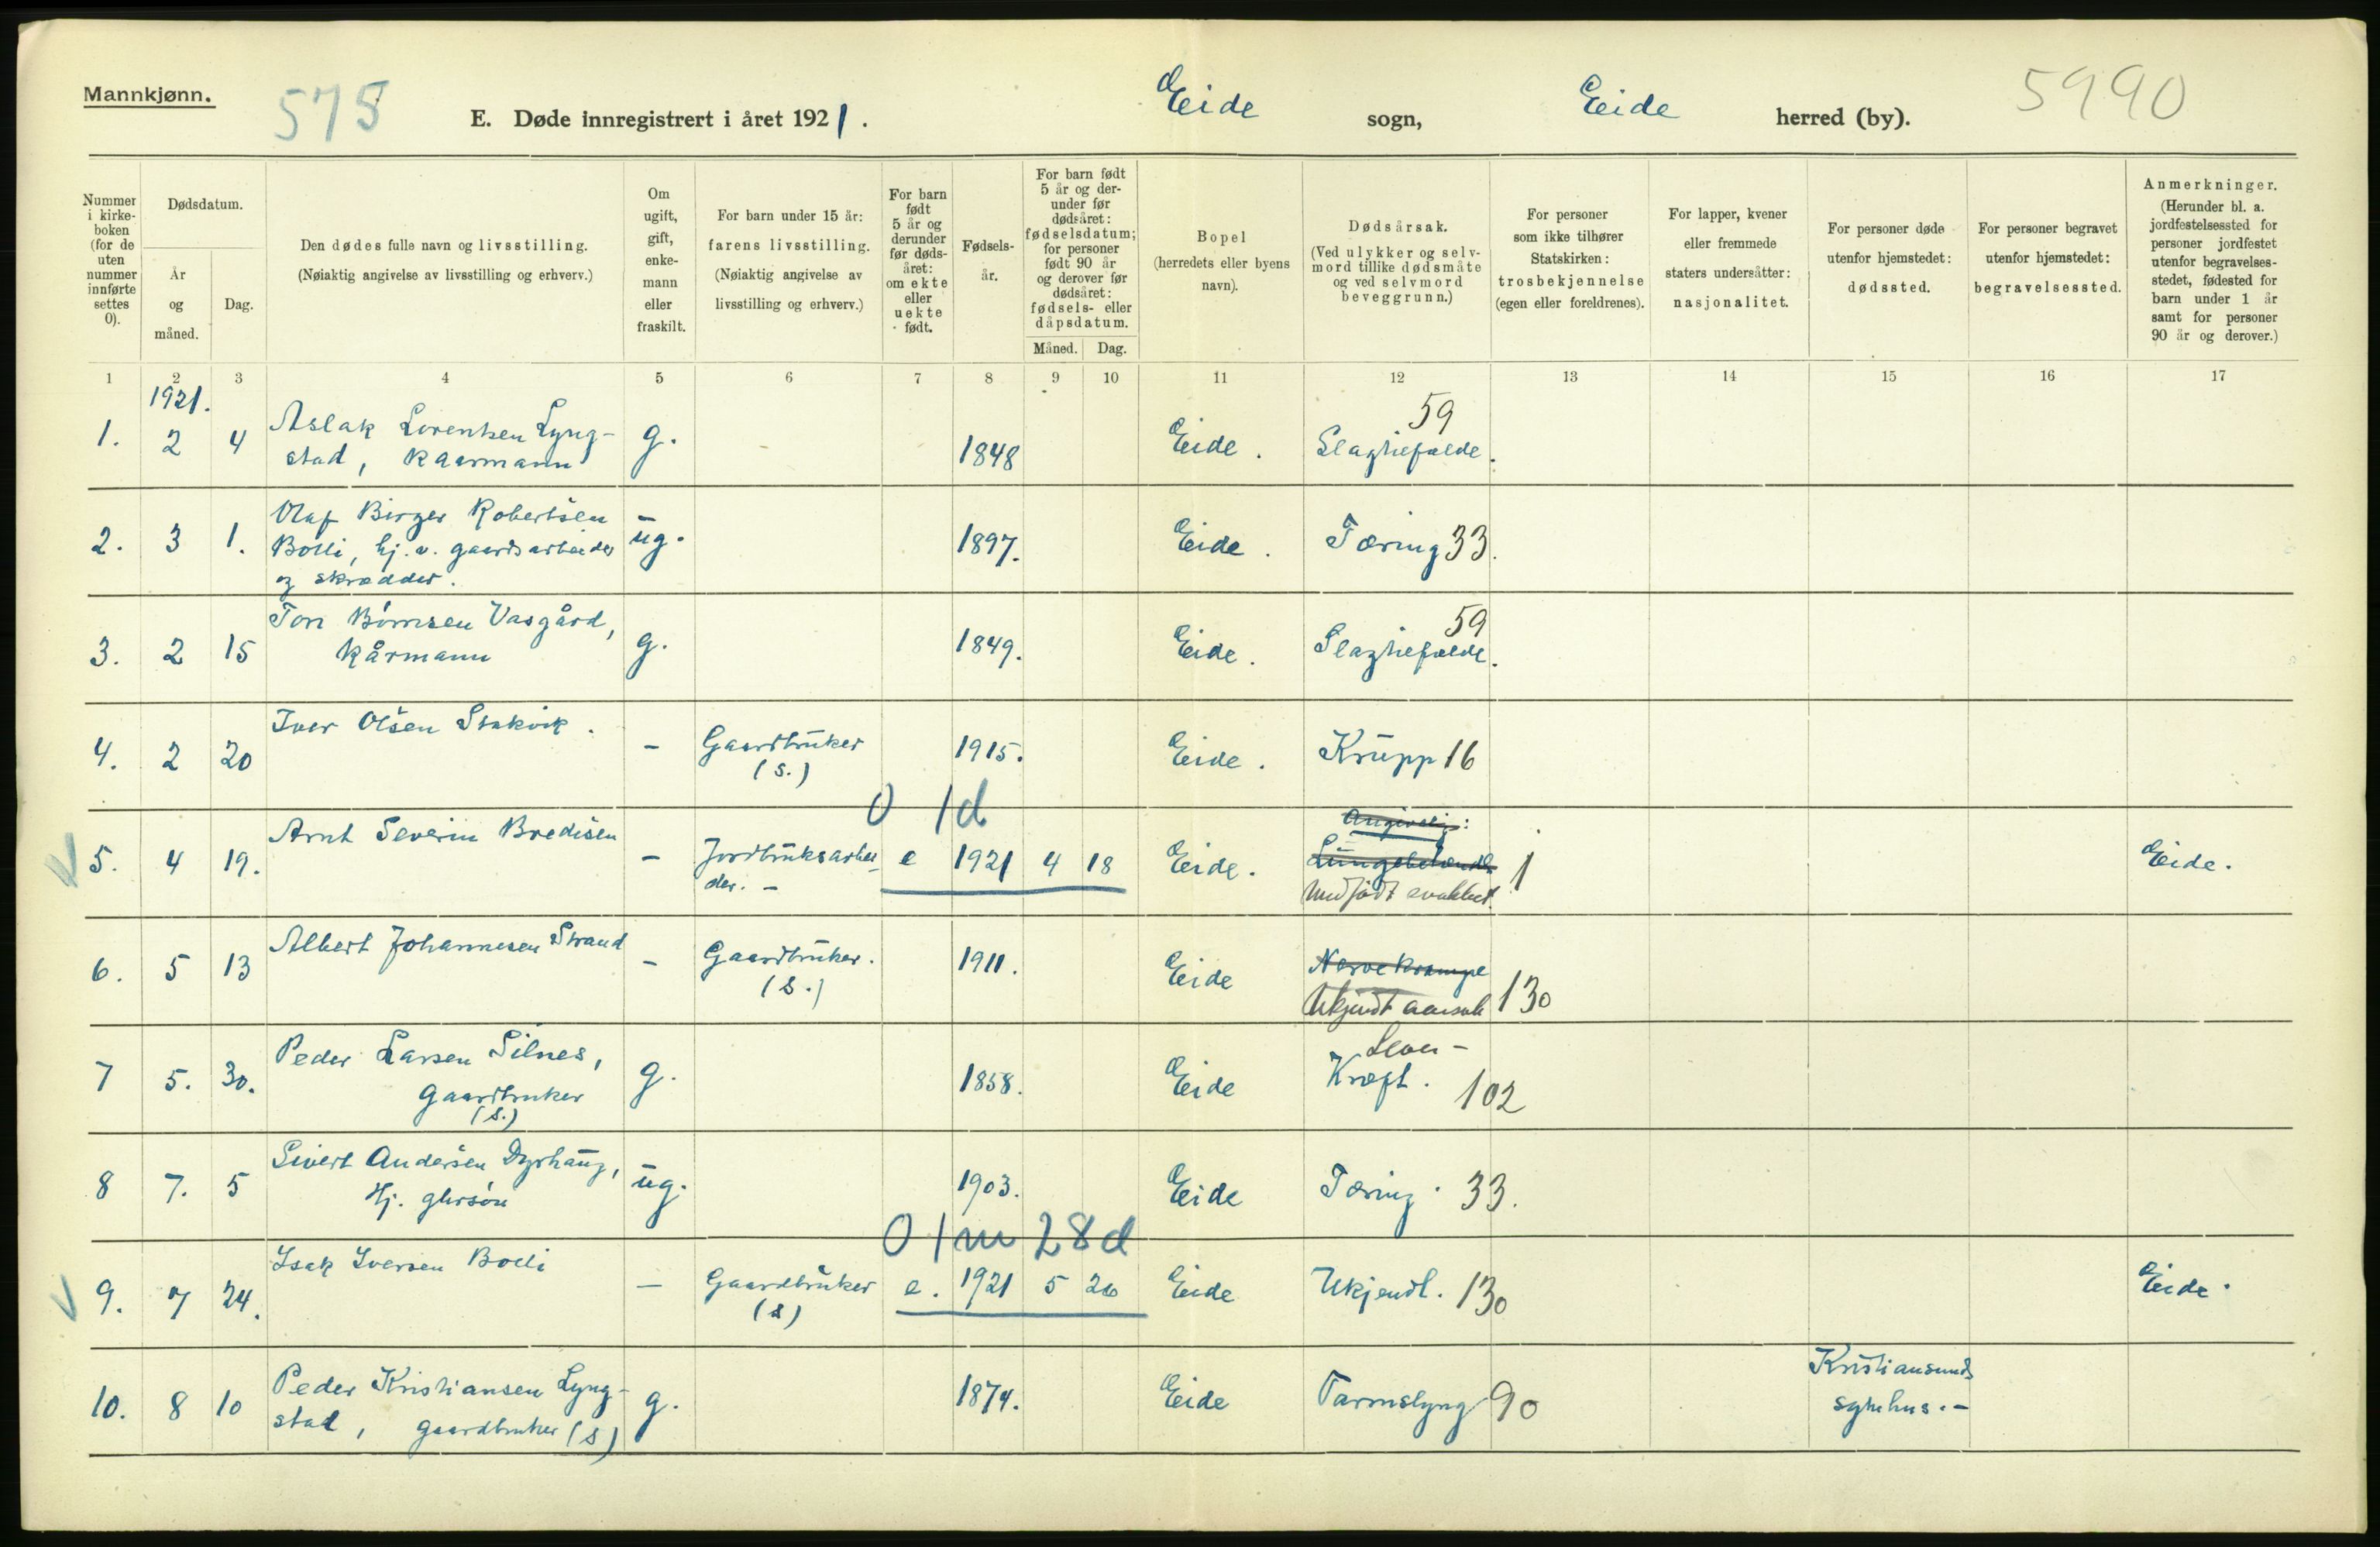 Mannkjønn.
575
E. Døde innregistrert i året 1921.
Eide sogn,
Eide herred (by).
5990
Nummer i kirke-boken (for de uten nummer innførte settes 0).
Dødsdatum.
År og måned.
Dag.
Den dødes fulle navn og livsstilling.
(Nøiaktig angivelse av livsstilling og erhverv.)
Om ugift, gift, enke-mann eller fraskilt.
For barn under 15 år: farens livsstilling.
(Nøiaktig angivelse av livsstilling og erhverv.)
For barn født 5 år og derunder før døds-året: om ekte eller uekte født.
Fødsels-år.
For barn født 5 år og der-under før dødsåret: fødselsdatum; for personer født 90 år og derover før dødsåret: fødsels- eller dåpsdatum.
Måned. Dag.
Bopel (herredets eller byens navn).
Dødsårsak.
(Ved ulykker og selv-mord tillike dødsmåte og ved selvmord beveggrunn.)
For personer som ikke tilhører Statskirken: trosbekjennelse (egen eller foreldrenes).
For lapper, kvener eller fremmede staters undersåtter: nasjonalitet.
For personer døde utenfor hjemstedet: dødssted.
For personer begravet utenfor hjemstedet: begravelsessted.
Anmerkninger.
(Herunder bl. a. jordfestelsessted for personer jordfestet utenfor begravelses-stedet, fødested for barn under 1 år samt for personer 90 år og derover.)
1 2 3 4 5 6 7 8 9 10 11 12 13 14 15 16 17
1921.
1. 2 4 Aslak Lorentsen Lyng-
stad, Kaarmann g. 1848 Eide. Slagtilfælde. 59
2. 3 1. Olaf Birger Robertsen
Bolli, hj. v. gaardsarbeider
og skrædder. ug. 1897. Eide. Tæring 33.
3. 2 15 Tore Børresen Vasgård,
Kårmann g. 1849. Eide. Slagtilfælde. 59
4. 2 20 Iver Olsen Stakvik. - Gaardbruker
(S.) 1915. Eide. Krupp 16
0 1d
5. 4 19. Arnt Severin Bredesen - Jordbruksarbei-
der. - e 1921 4 18 Eide. Angivelig:
Lungebetændelse
Medfødt svakhet. 1 Eide.
6. 5 13 Albert Johannesen Strand - Gaardbruker.
(S.) 1911. Eide Nervekrampe
Ukjendt aarsak 130
7 5. 30. Peder Larsen Silnes,
Gaardbruker
(S.) g. 1858. Eide Lever-
Kræft. 102
8 7. 5 Sivert Andersen Dyrhaug,
Hj. gbrsøn ug. 1903. Eide Tæring. 33.
0 1m 28d
9. 7 24. Isak Iversen Bolli - Gaardbruker
(S) e. 1921 5 26 Eide Ukjendt. 130 Eide.
10. 8 10 Peder Kristiansen Lyng-
stad, gaardbruker (S) g. 1874. Eide Tarmslyng 90 Kristiansunds
sykehus.-